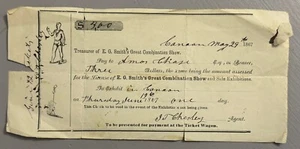 $ 4.00
Canaan May 29th 1867
Treasurer of E. G. Smith's Great Combination Show,
Pay to Amos Chase Esq., or Bearer,
Three Dollars, the same being the amount assessed
for the License of E. G. Smith's Great Combination Show and Side Exhibitions.
To be Exhibited in Canaan
on Thursday June 13th 1867 one day
This Ck to be void in the event of the Exhibition not taking place.
Agent.
To be presented for payment to the Ticket Wagon.